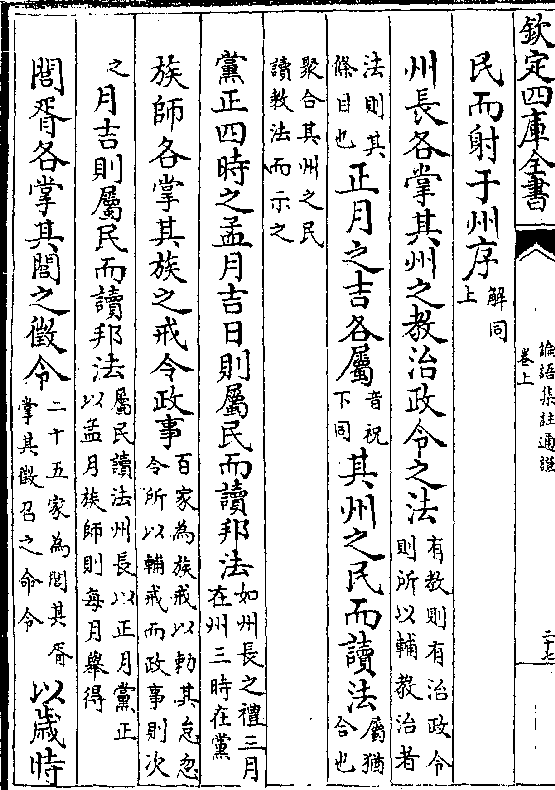 欽定四庫全書
論語集註通證
卷上
二十七
民而射于州序
解同
上
州長各掌其州之教治政令之法
有教則有治政令
則所以輔教治者
法則其
條目也
正月之吉各屬
音祝
下同
其州之民而讀法
屬猶
合也
聚合其州之民
讀教法而示之
黨正四時之孟月吉日則屬民而讀邦法
如州長之禮三月
在州三時在黨
族師各掌其族之戒令政事
百家為族戒以勅其怠忽
令所以輔戒而政事則次
之
月吉則屬民而讀邦法
屬民讀法州長以正月黨正
以孟月族師則每月舉得
閭胥各掌其閭之徵令
二十五家為閭其胥
掌其徵召之命令
以歲時